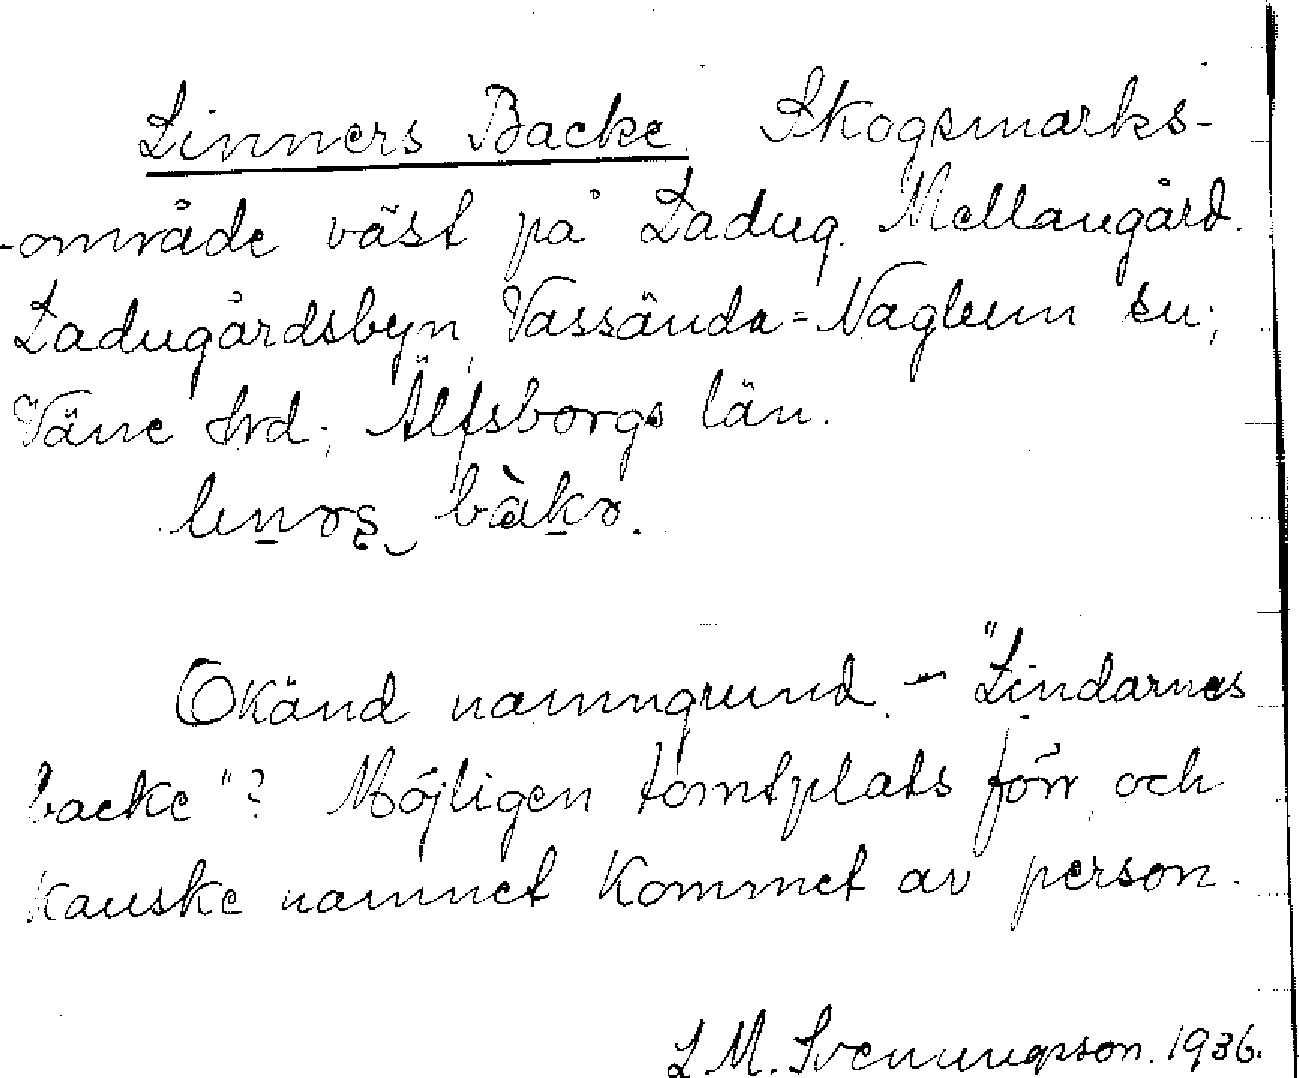 Linners Backe. Skogsmarks-
-område väst på Ladug. Mellangård.
Ladugårdsbyn, Vassända-Naglum sn;
Väne hrd; Älfsborgs län.
bàkɤ.
Okänd namngrund. - "Lindarnes
backe"? Möjligen tomtplats förr och
kanske namnet kommet av person.
L M. Svenungsson. 1936.